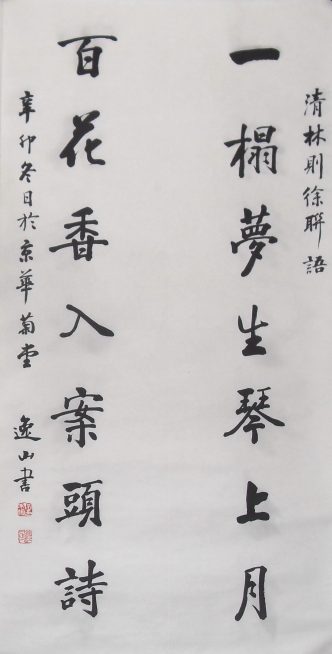 清林則徐聯語
一榻夢生琴上月
百花香入案頭詩
辛卯冬日於京華菊堂 逸山書